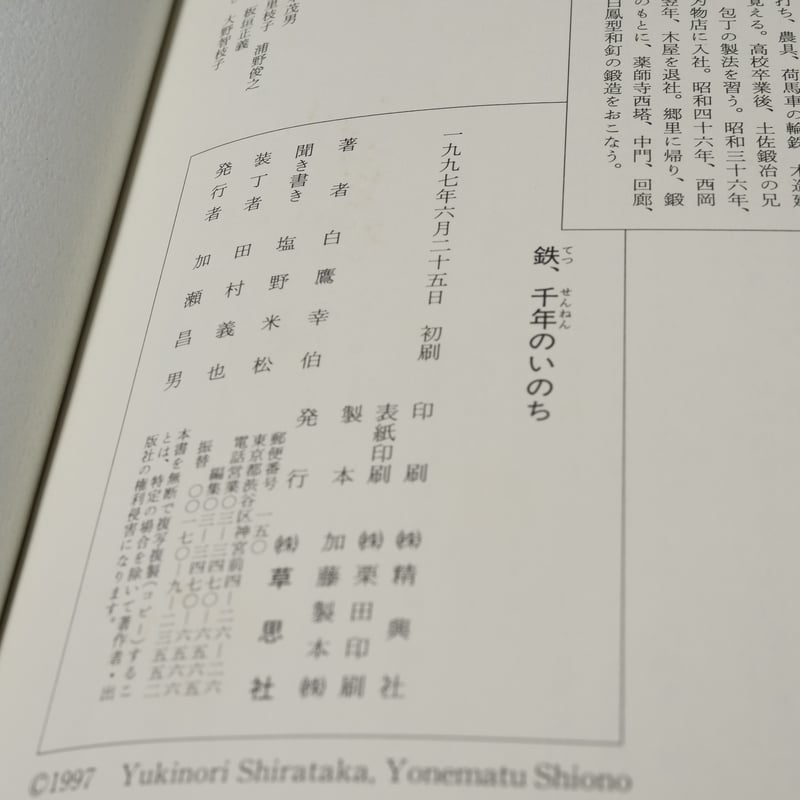 打ち、農具、荷馬車の輪鉄、木造建
覚える。高校卒業後、土佐鍛冶の兄
包丁の製法を習う。昭和三十六年、
刃物店に入社。昭和四十六年、西岡
翌年、木屋を退社。郷里に帰り、鍛
のもとに、薬師寺西塔、中門、回廊、
白鳳型和釘の鍛造をおこなう。
茂男
里枝子 浦野俊之
板垣正義
大野智枝子
鉄、千年のいのち
てつ せんねん
一九九七年六月二十五日 初刷
著者 白鷹幸伯
聞き書き 塩野米松
装丁者 田村義也
発行者 加瀬昌男
印刷 ㈱精興社
表紙印刷 ㈱栗田印刷
製本 加藤製本㈱
発行 ㈱草思社
郵便番号 一五〇
東京都渋谷区神宮前四―二六―二六
電話営業〇三―三四七〇―六五六五
編集〇三―三四七〇―六五六六
振替 〇〇一七〇―九―二三五五二
本書を無断で複写複製(コピー)するこ
とは、特定の場合を除いて著作者・出
版社の権利侵害になります。
©1997 Yukinori Shirataka, Yonematu Shiono